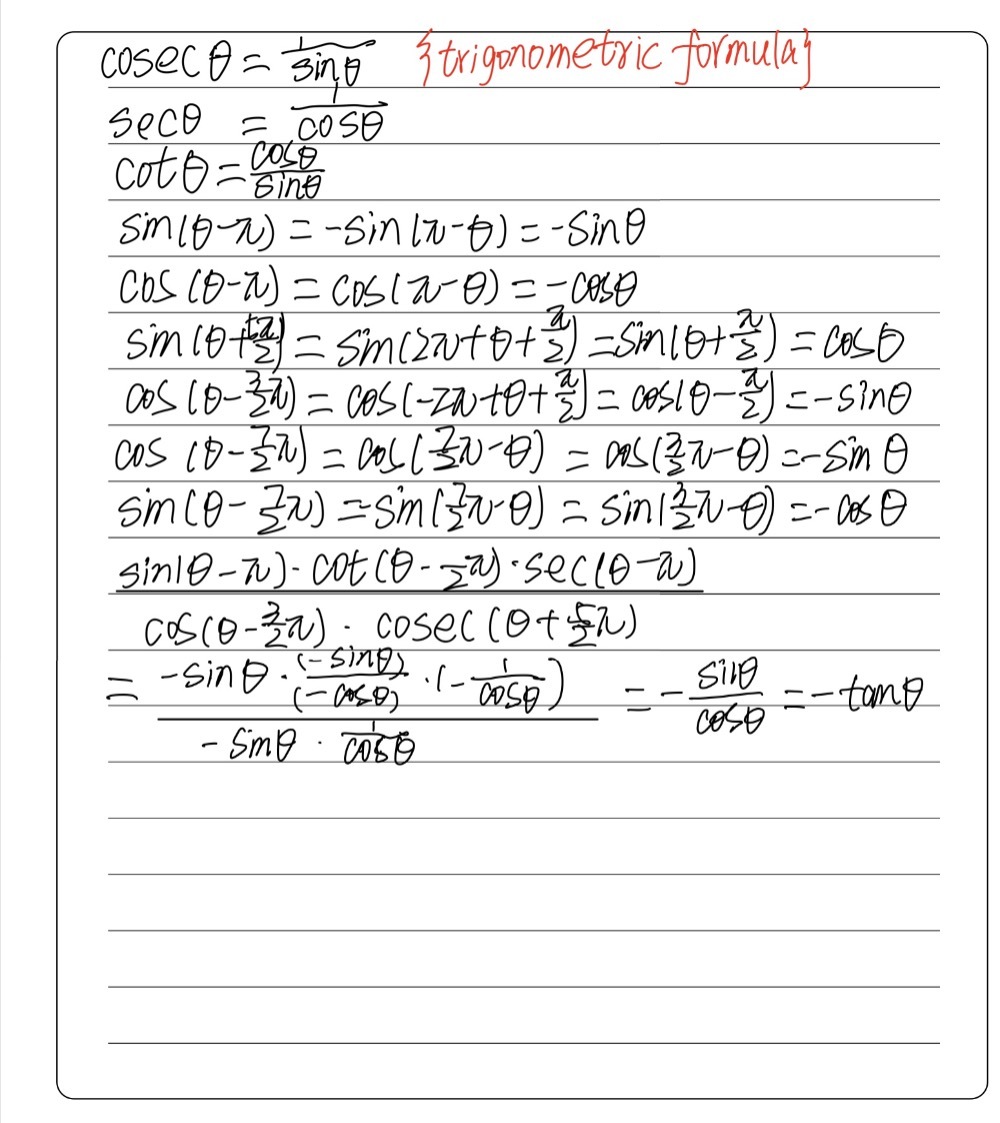 cosec θ = 1/sin θ {trigonometric formula}
sec θ = 1/cos θ
cot θ = cos θ/sin θ
sin(θ-π) = -sin(π-θ) = -sin θ
cos(θ-π) = cos(π-θ) = -cos θ
sin(θ+5π/2) = sin(2π+θ+π/2) = sin(θ+π/2) = cos θ
cos(θ-3/2π) = cos(-2π+θ+π/2) = cos(θ-π/2) = -sin θ
cos(θ-7/2π) = cos(7/2π-θ) = cos(3/2π-θ) = -sin θ
sin(θ-7/2π) = sin(7/2π-θ) = sin(3/2π-θ) = -cos θ
sin(θ-π)·cot(θ-7/2π)·sec(θ-π)
cos(θ-3/2π)·cosec(θ+5/2π)
= -sin θ·(-sin θ)/(-cos θ)·(-1/cos θ) / -sin θ·1/cos θ = -sin θ/cos θ = -tan θ